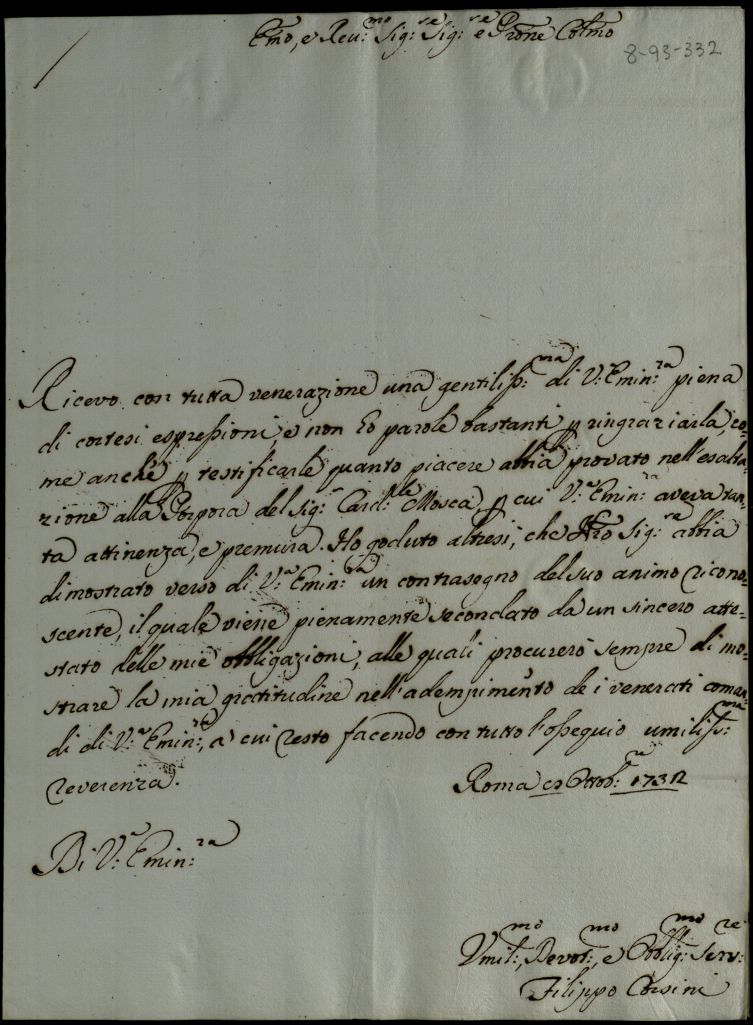 Emo, e Reu:mo Sig:re Sig:re e Prone Colmo
8-93-332
Ricevo con tutta venerazione una gentiliss:ma di V:a Emin:za piena
di cortesi espressioni, e non ho parole bastanti p ringraziarla, co-
me anche p testificarle quanto piacere abbia provato nell'esalta-
zione alla Porpora del Sig:r Card:le Mosca, p cui V:a Emin:za aveva tan-
ta attinenza, e premura. Ho goduto altresi, che Nro Sig:re abbia
dimostrato verso di V:a Emin:za un contrasegno del suo animo ricono-
scente, il quale viene pienamente secondato da un sincero atte-
stato delle mie obbligazioni, alle quali procurerò sempre di mo-
strare la mia gratitudine nell'adempimento de i venerati coman-
di di V:a Emin:za, a cui resto facendo con tutto l'ossequio umiliss:ma
reverenza.
Roma Ottob:re
Di V:a Emin:za
Vmil:mo, Devot:mo, e Obblig:mo Serv:re
Filippo Corsini